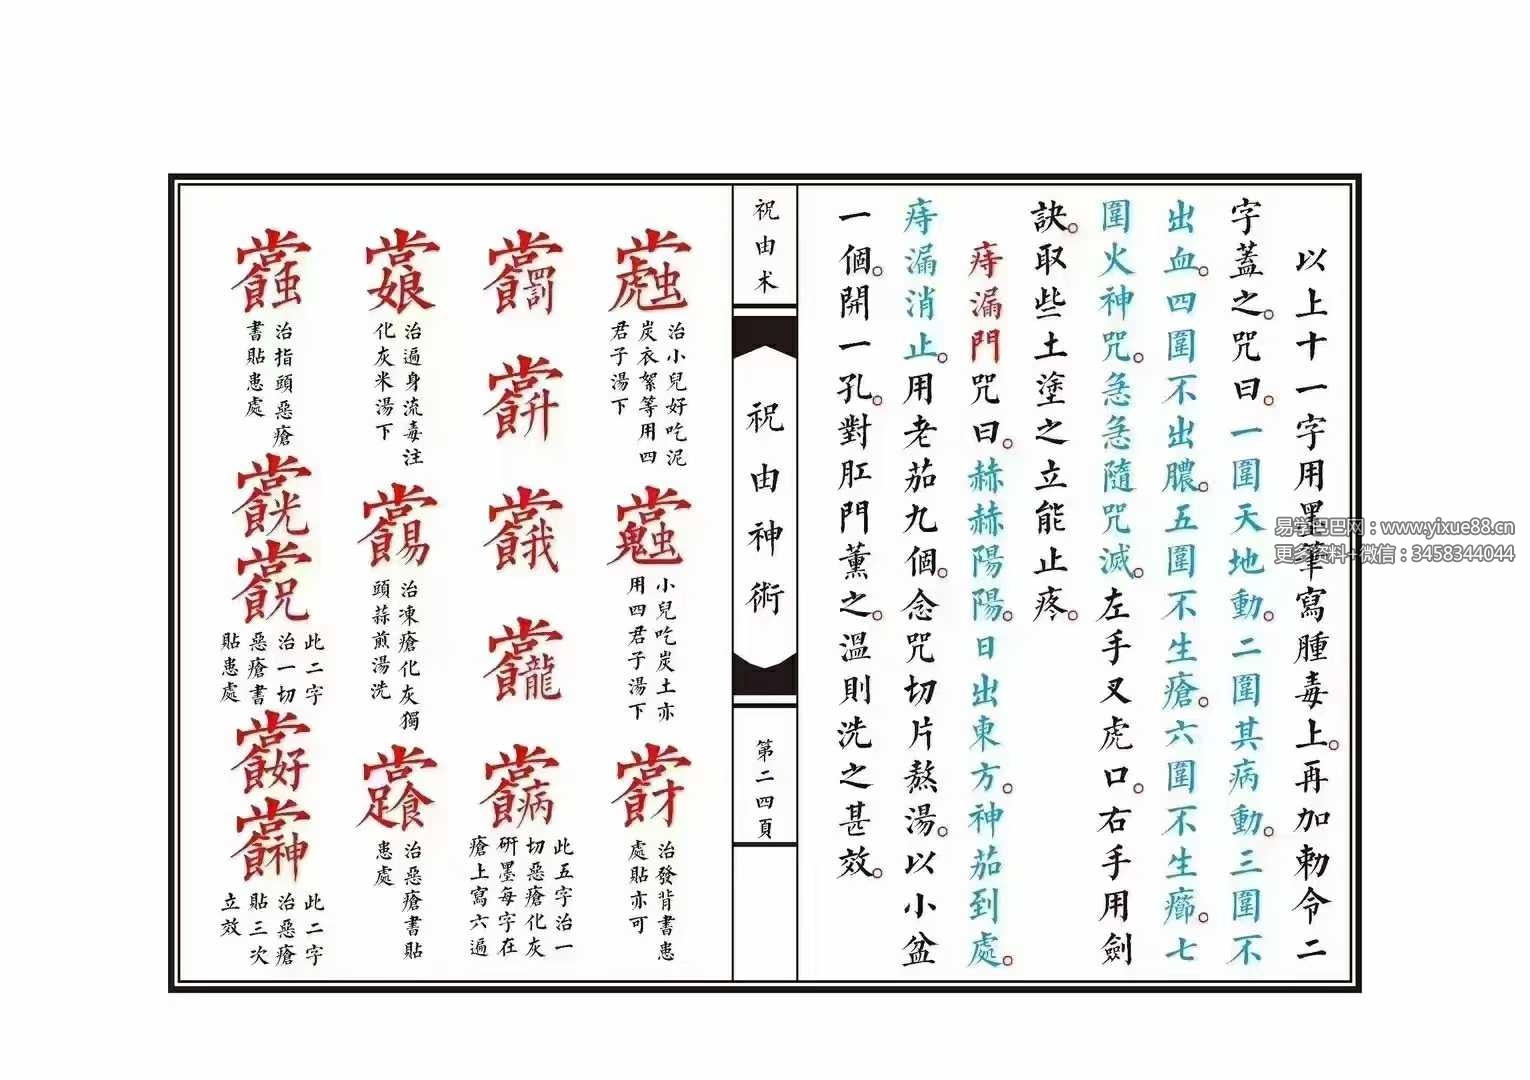 以上十一字用墨筆寫腫毒上。再加勅令二
字蓋之。咒曰。一圍天地動。二圍其病動。三圍不
出血。四圍不出膿。五圍不生瘡。六圍不生癤。七
圍火神咒。急急隨咒滅。左手叉虎口。右手用劍
訣。取些土塗之立能止疼。
痔漏門咒曰。赫赫陽陽。日出東方。神茄到處。
痔漏消止。用老茄九個。念咒切片熬湯。以小盆
一個。開一孔。對肛門薰之。溫則洗之甚效。
祝由术
祝由神術
第二四頁
治小兒好吃泥
炭衣絮等用四
君子湯下
小兒吃炭土亦
用四君子湯下
治發背書患
處貼亦可
此五字治一
切惡瘡化灰
研墨每字在
瘡上寫六遍
治遍身流毒注
化灰米湯下
治凍瘡化灰獨
頭蒜煎湯洗
治惡瘡書貼
患處
治指頭惡瘡
書貼患處
此二字
治一切
惡瘡書
貼患處
此二字
治惡瘡
貼三次
立效
易学巴巴网：www.yixue88.cn
更多资料+微信：3458344044